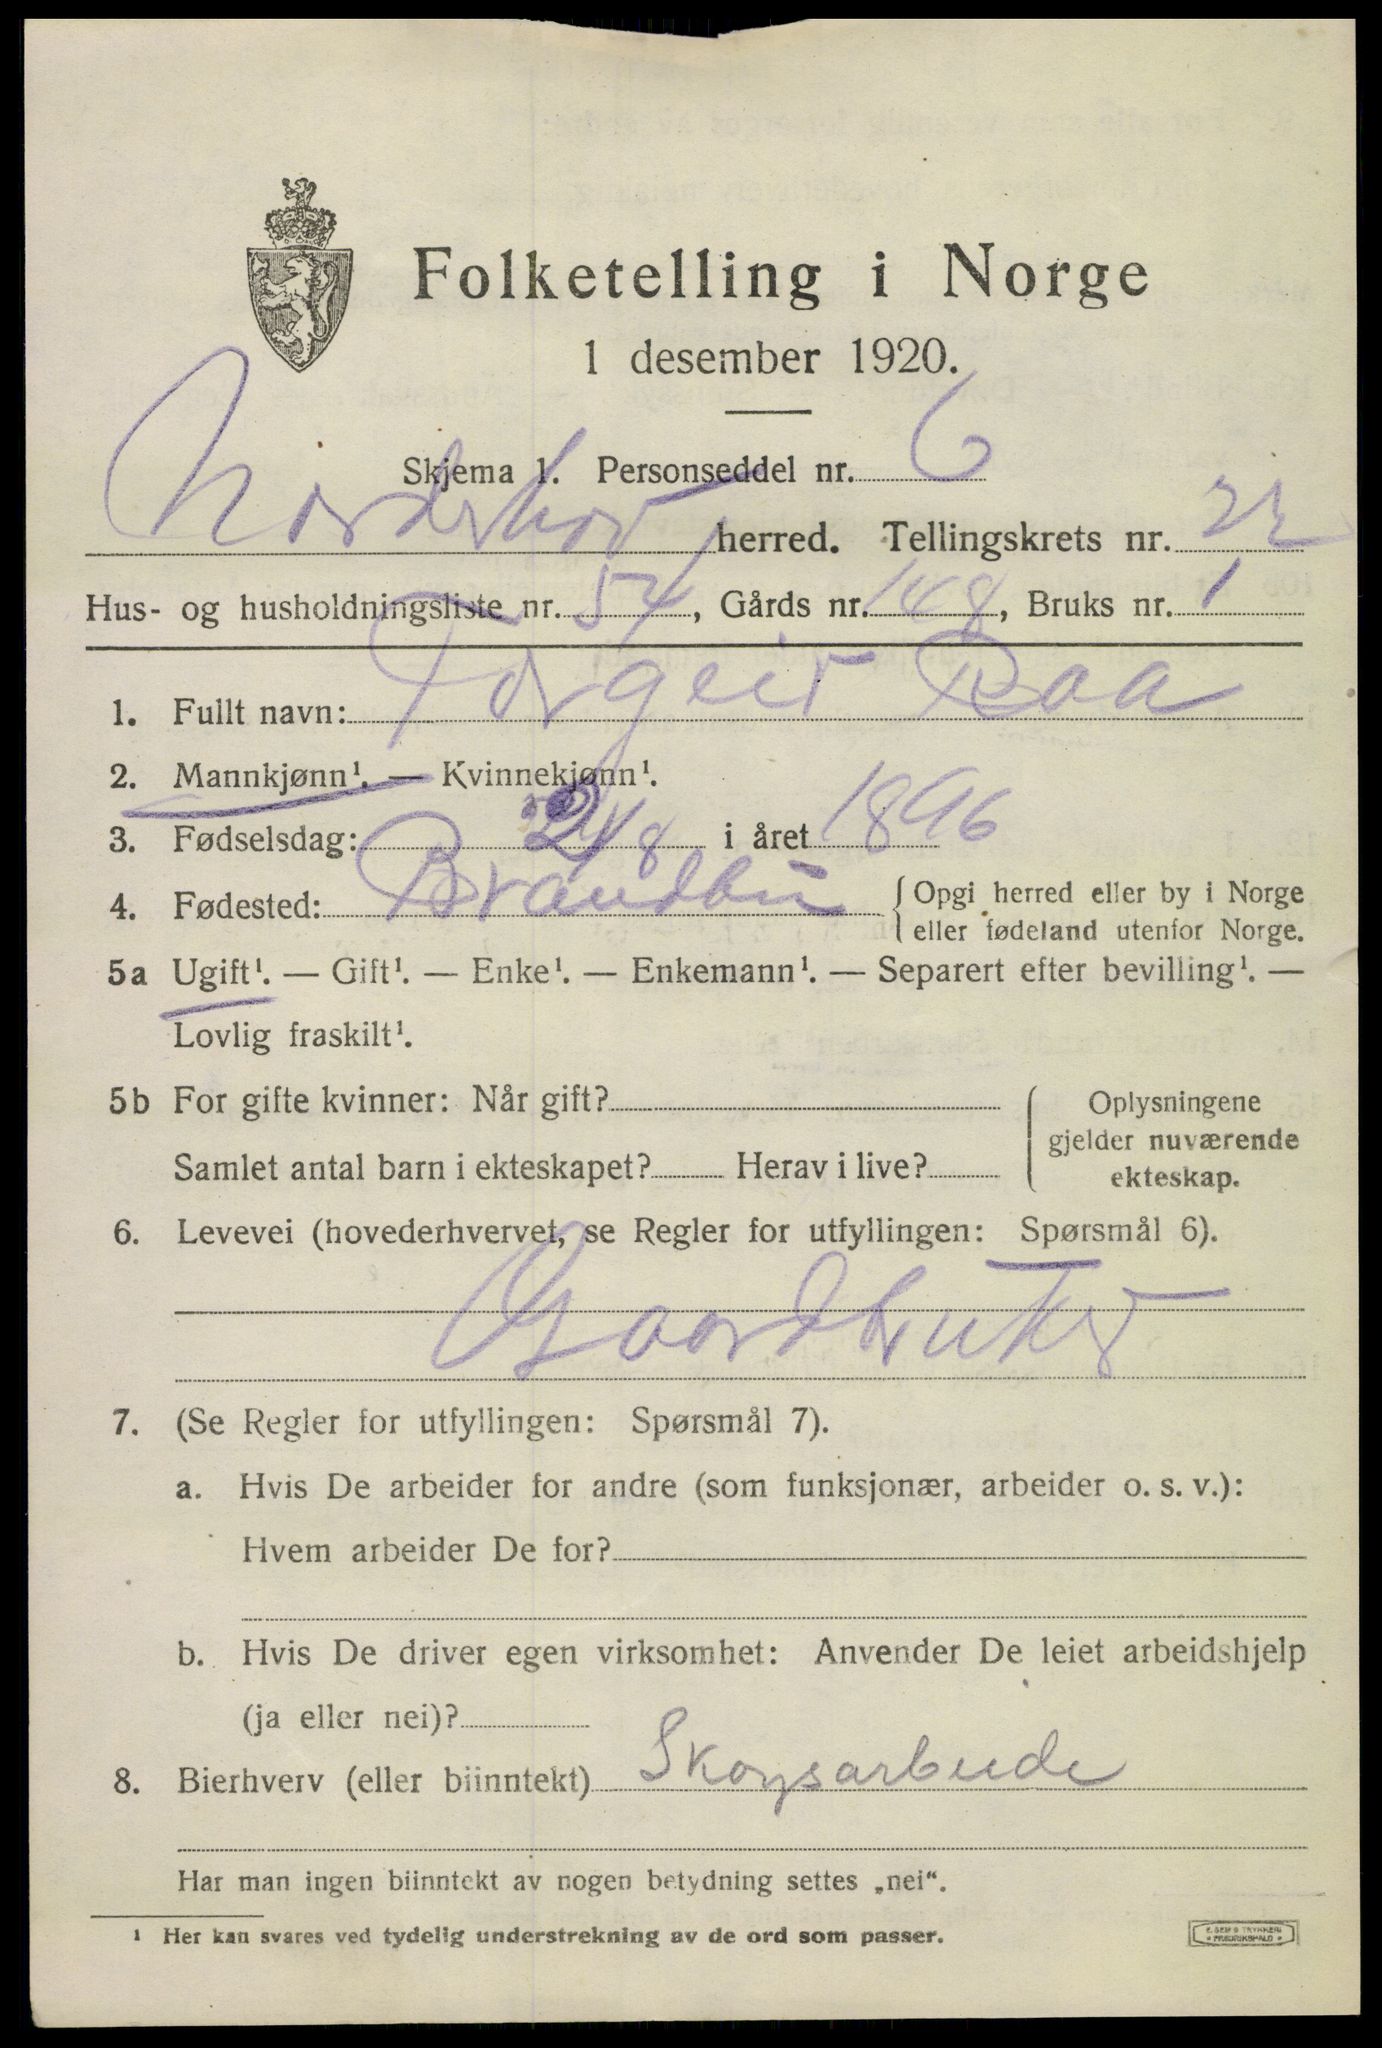 Folketelling i Norge
1 desember 1920.
Skjema 1. Personseddel nr. 6
Norderhov herred. Tellingskrets nr. 22
Hus- og husholdningsliste nr. 54, Gårds nr. 148, Bruks nr. 1
1. Fullt navn: Torgeir Raa
2. Mannkjønn¹. — Kvinnekjønn¹.
3. Fødselsdag: 24/8 i året 1896
4. Fødested: Brandbu { Opgi herred eller by i Norge
eller fødeland utenfor Norge.
5a Ugift¹. — Gift¹. — Enke¹. — Enkemann¹. — Separert efter bevilling¹. —
Lovlig fraskilt¹.
5b For gifte kvinner: Når gift? { Oplysningene
gjelder nuværende
Samlet antal barn i ekteskapet? Herav i live?
ekteskap.
6. Levevei (hovederhvervet, se Regler for utfyllingen: Spørsmål 6).
Gaardbruker
7. (Se Regler for utfyllingen: Spørsmål 7).
a. Hvis De arbeider for andre (som funksjonær, arbeider o. s. v.):
Hvem arbeider De for?
b. Hvis De driver egen virksomhet: Anvender De leiet arbeidshjelp
(ja eller nei)?
8. Bierhverv (eller biinntekt) Skogsarbeide
Har man ingen biinntekt av nogen betydning settes „nei“.
¹ Her kan svares ved tydelig understrekning av de ord som passer.